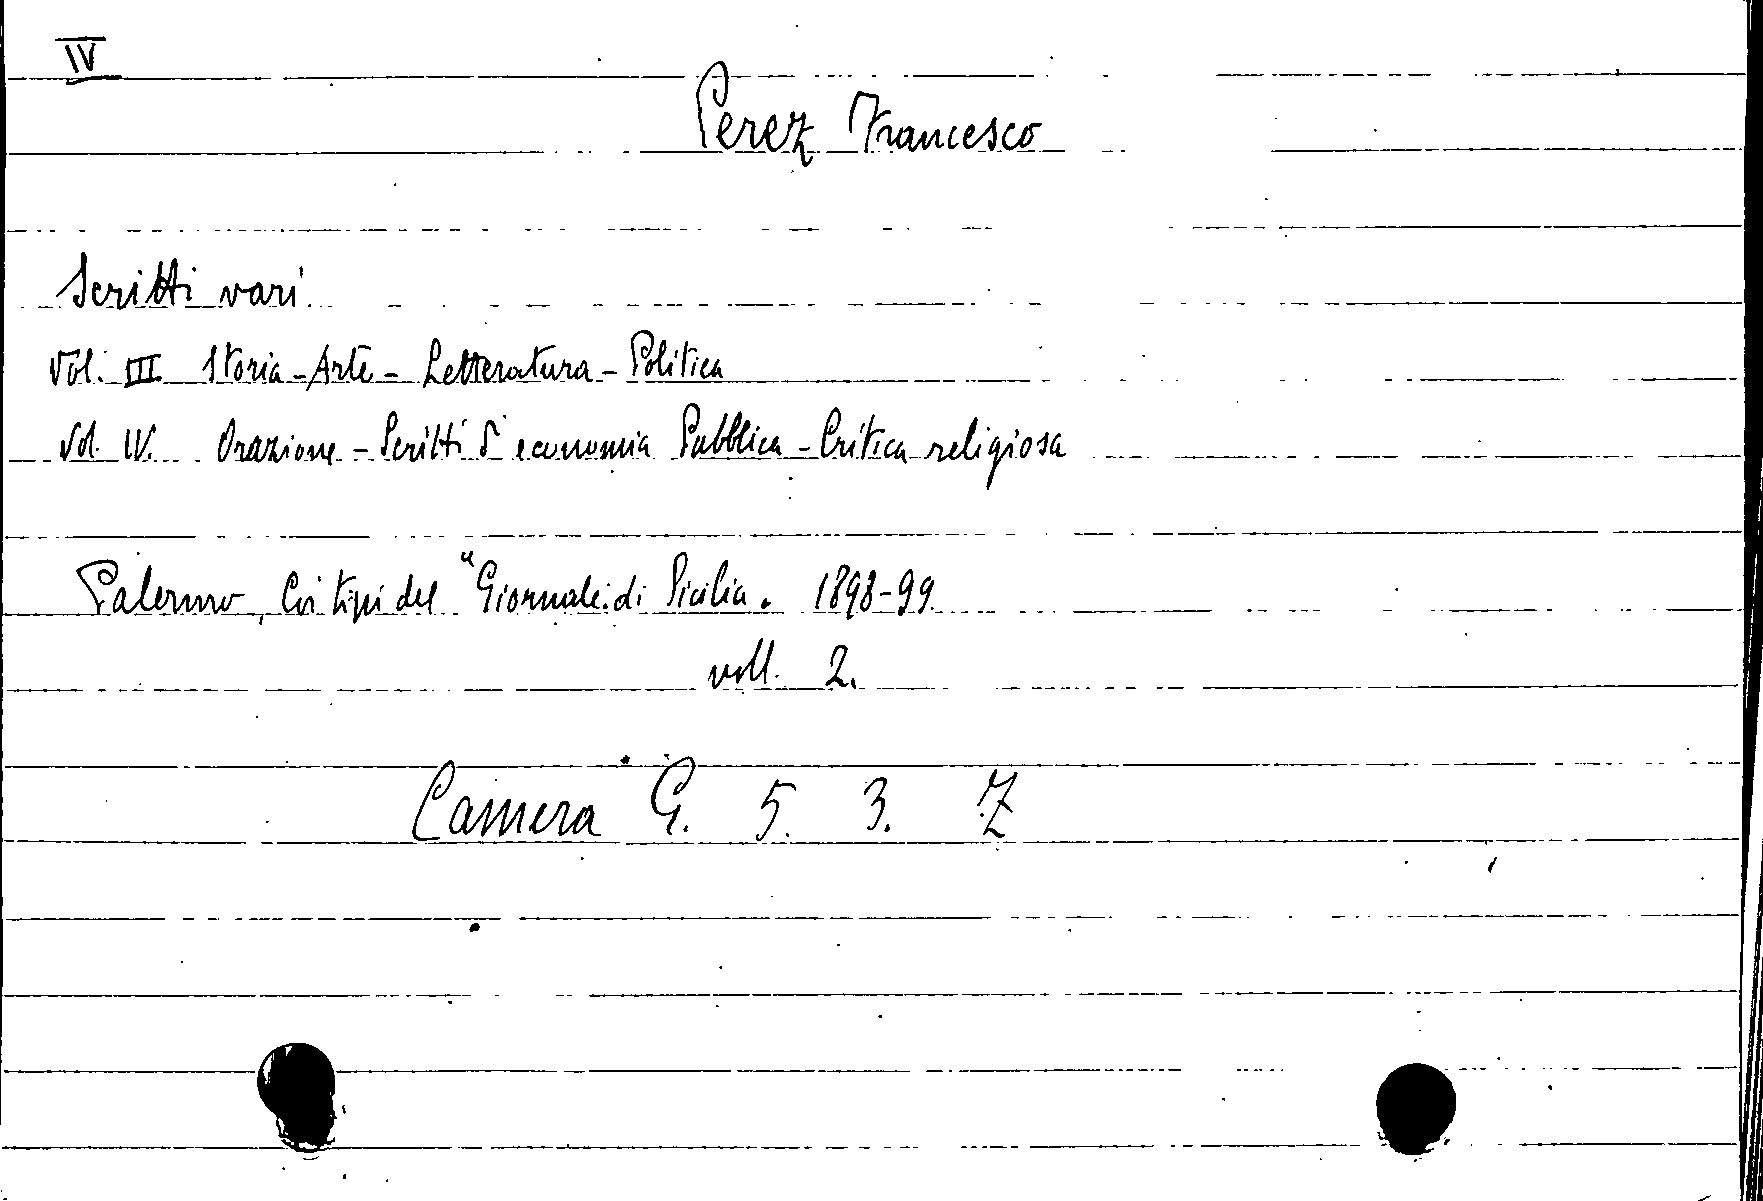 IV
Perez Francesco
Scritti vari
Vol. III Storia - Arte - Letteratura - Politica
Vol. IV. Orazione - Scritti d'economia Pubblica - Critica religiosa
Palermo, Coi tipi del "Giornale di Sicilia. 1898-99
voll. 2.
Camera G. 5. 3. Z